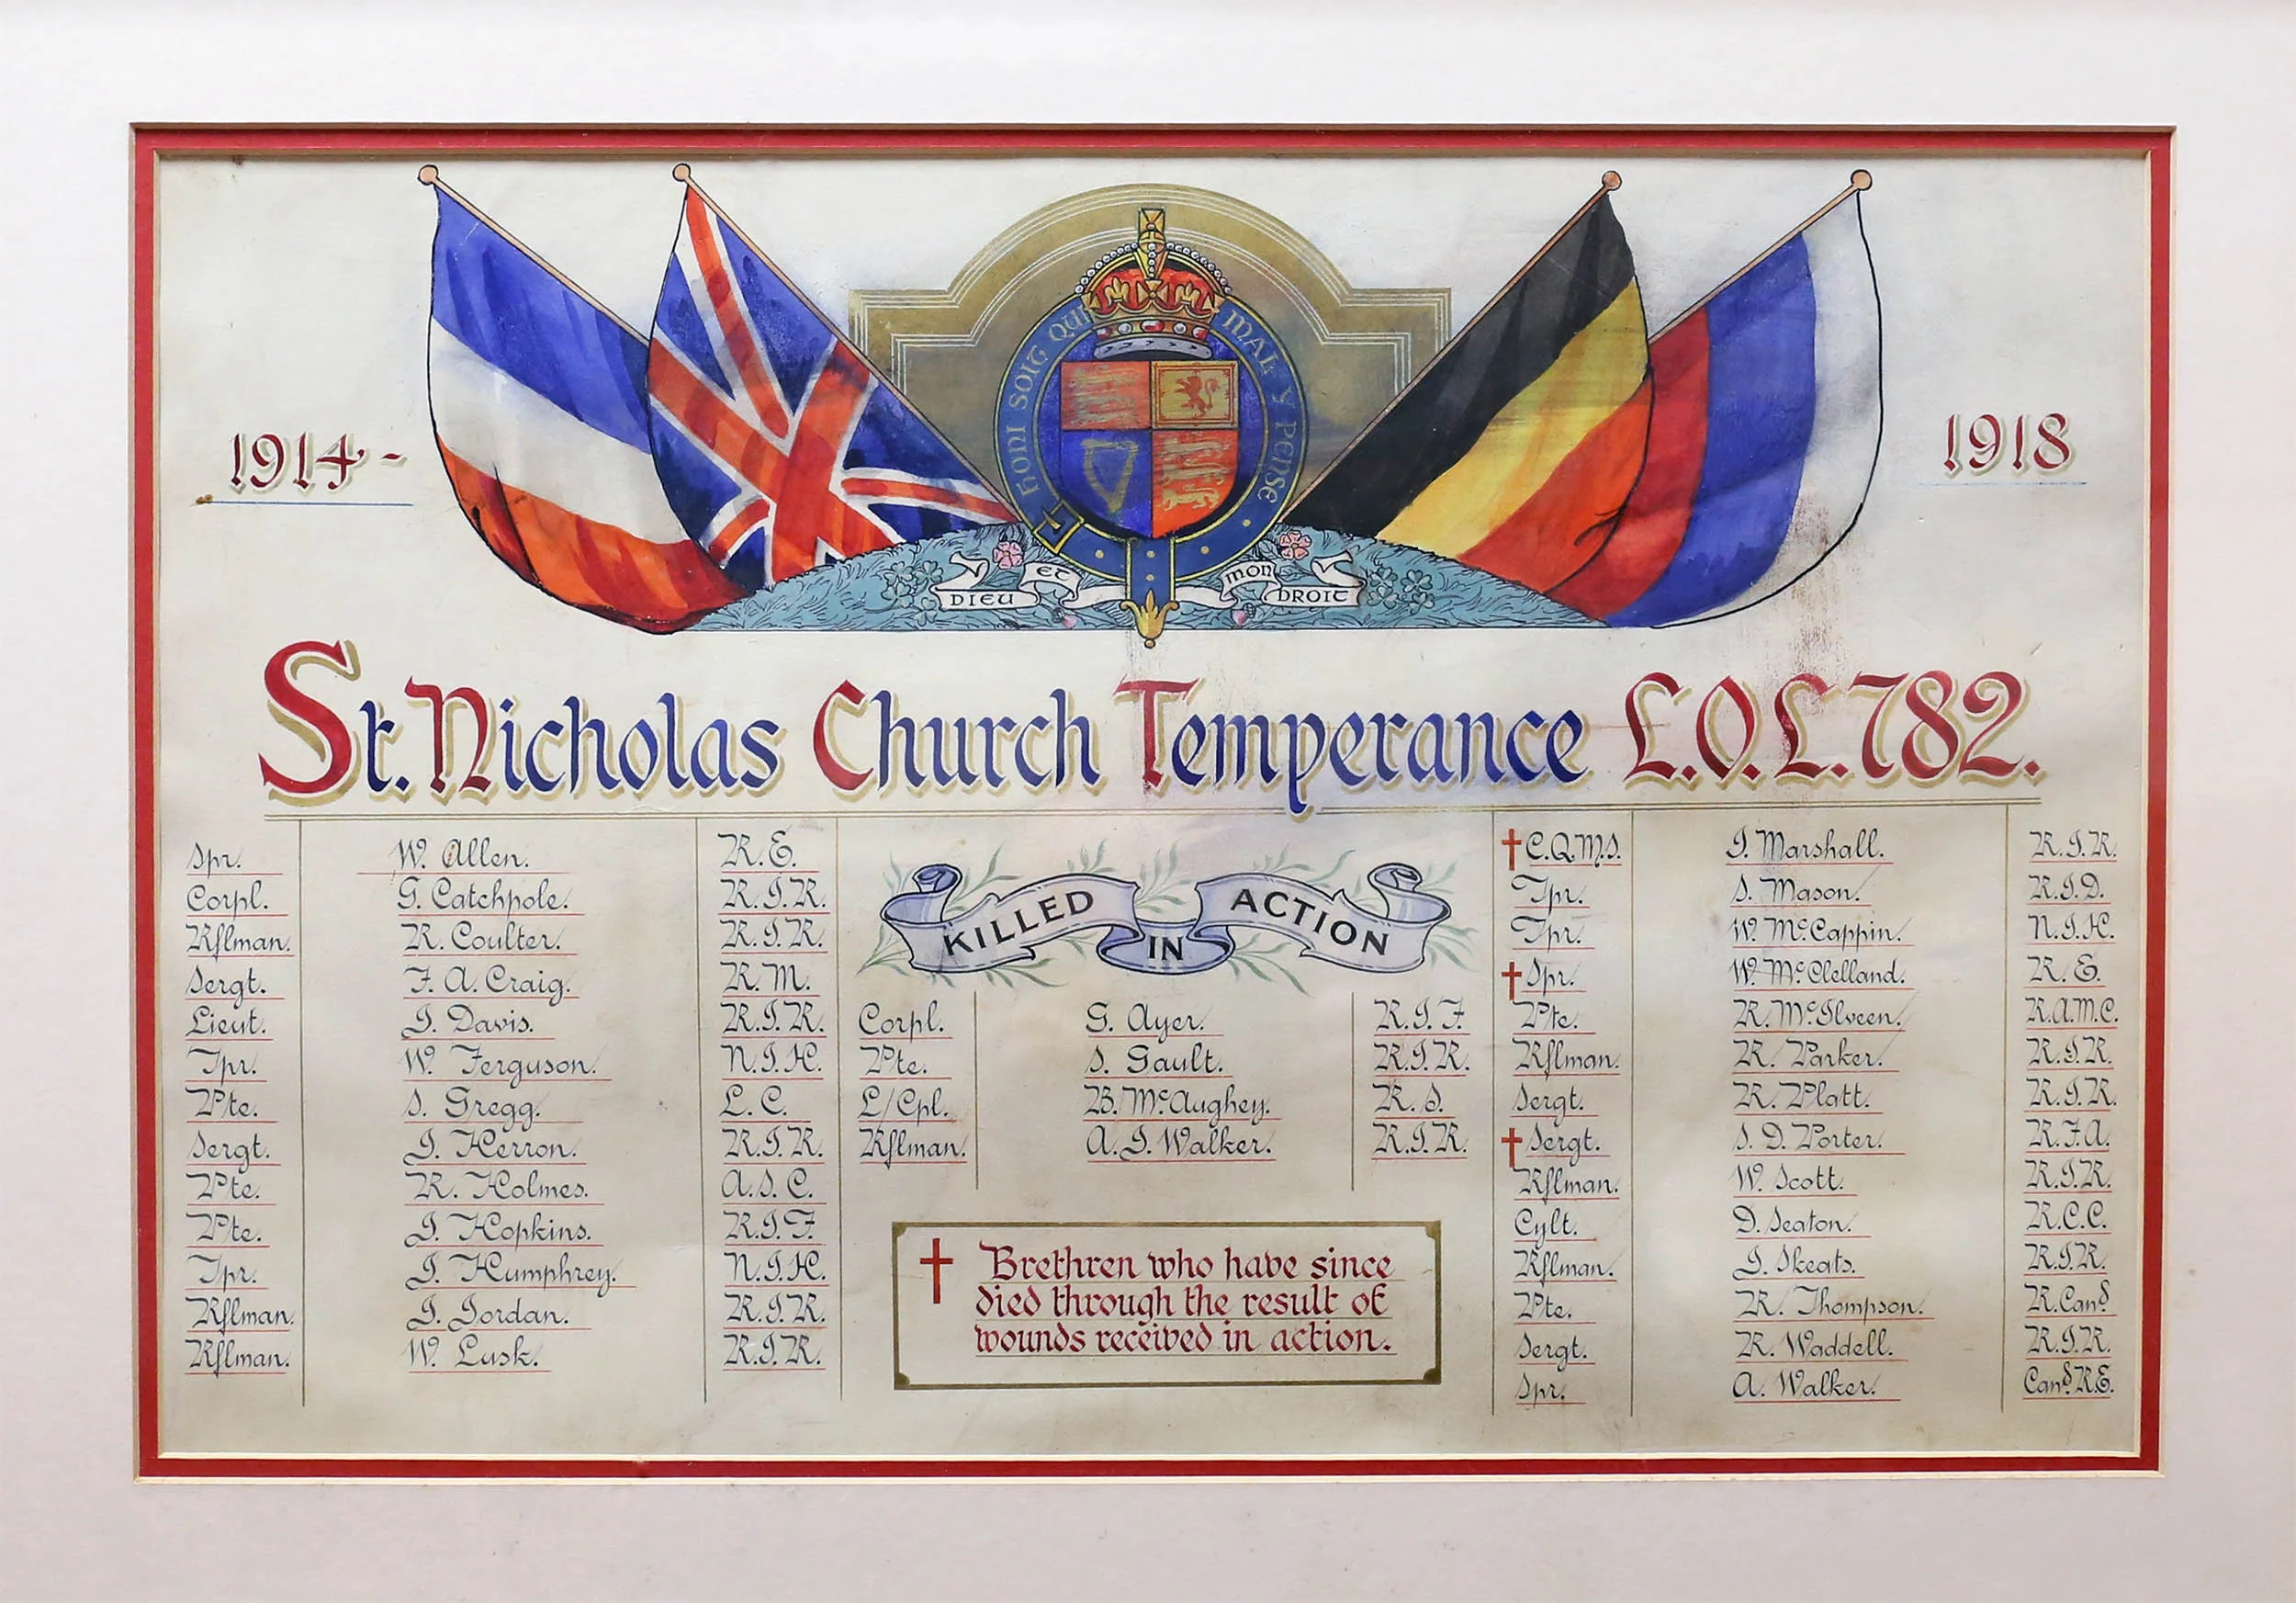 1914 -
1918
HONI SOIT QUI MAL Y PENSE
DIEU ET MON DROIT
St. Nicholas Church Temperance L.O.L. 782.
Spr. W. Allen. R.E.
Corpl. G. Catchpole. R.I.R.
Rflman. R. Coulter. R.I.R.
Sergt. F. A. Craig. R.M.
Lieut. J. Davis. R.I.R.
Tpr. W. Ferguson. N.I.H.
Pte. S. Gregg. L.C.
Sergt. J. Herron. R.I.R.
Pte. R. Holmes. A.S.C.
Pte. J. Hopkins. R.I.F.
Tpr. J. Humphrey. N.I.H.
Rflman. J. Jordan. R.I.R.
Rflman. W. Lusk. R.I.R.
KILLED IN ACTION
Corpl. G. Ayer. R.I.F.
Pte. S. Gault. R.I.R.
L/Cpl. B. McAughey. R.S.
Rflman. A. J. Walker. R.I.R.
† Brethren who have since
died through the result of
wounds received in action.
† C.Q.M.S. J. Marshall. R.I.R.
Tpr. S. Mason. R.I.D.
Tpr. W. McCappin. N.I.H.
† Spr. W. McClelland. R.E.
Pte. R. McIlveen. R.A.M.C.
Rflman. R. Parker. R.I.R.
Sergt. R. Platt. R.I.R.
† Sergt. S. D. Porter. R.F.A.
Rflman. W. Scott. R.I.R.
Cylt. D. Seaton. R.C.C.
Rflman. J. Skeats. R.I.R.
Pte. R. Thompson. R.Cands
Sergt. R. Waddell. R.I.R.
Spr. A. Walker. Cands. R.E.